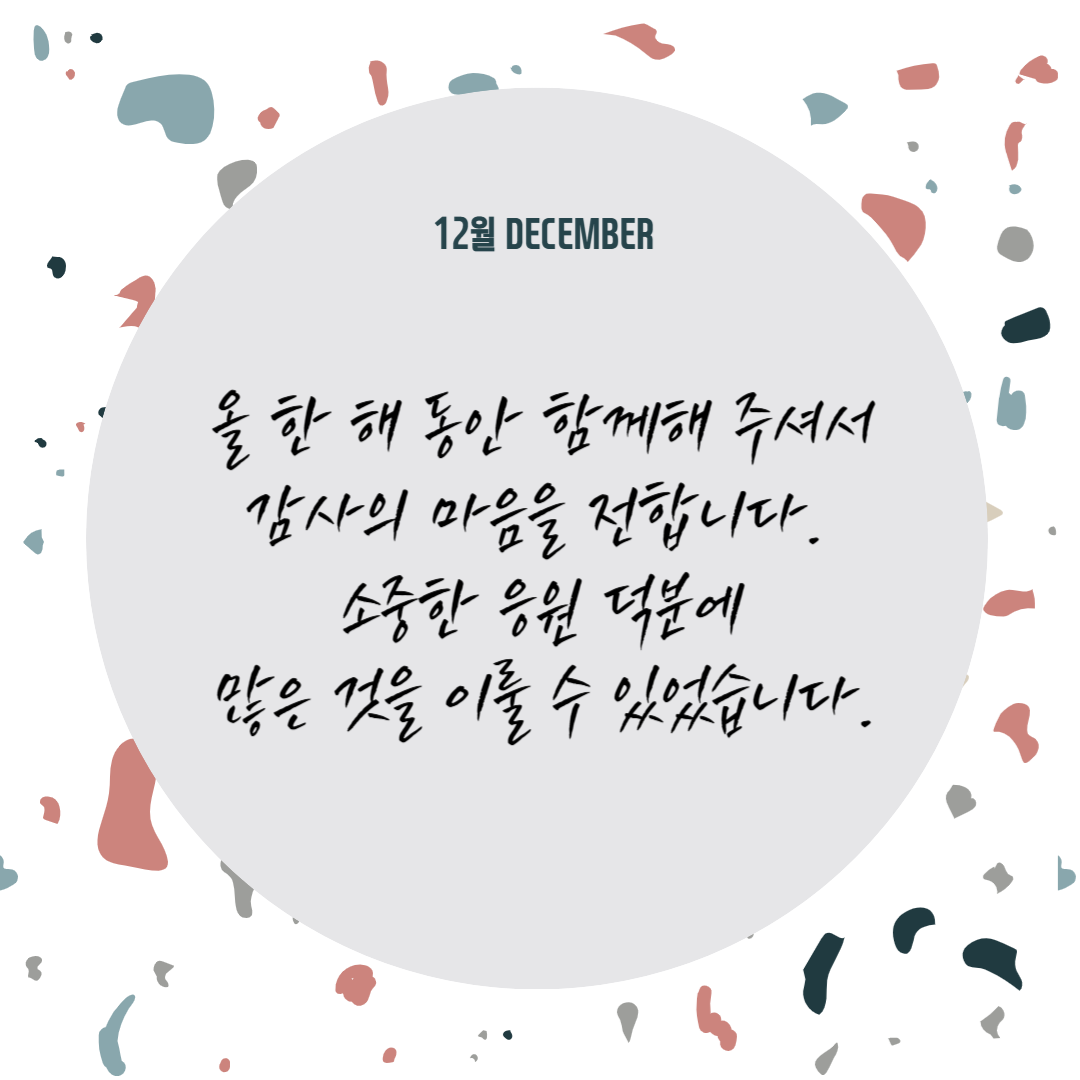 12월 DECEMBER
올 한 해 동안 함께해 주셔서
감사의 마음을 전합니다.
소중한 응원 덕분에
많은 것을 이룰 수 있었습니다.